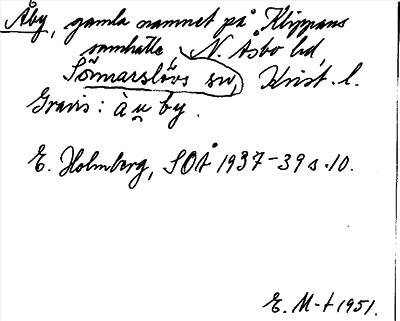 Åby, gamla namnet på Klippans
samhälle N. Åsbo hd,
Sönnarslövs sn, Krist. l.
Gravis: à u by.
E. Holmberg, SOÅ 1937-39 s. 10.
E. M-t 1951.